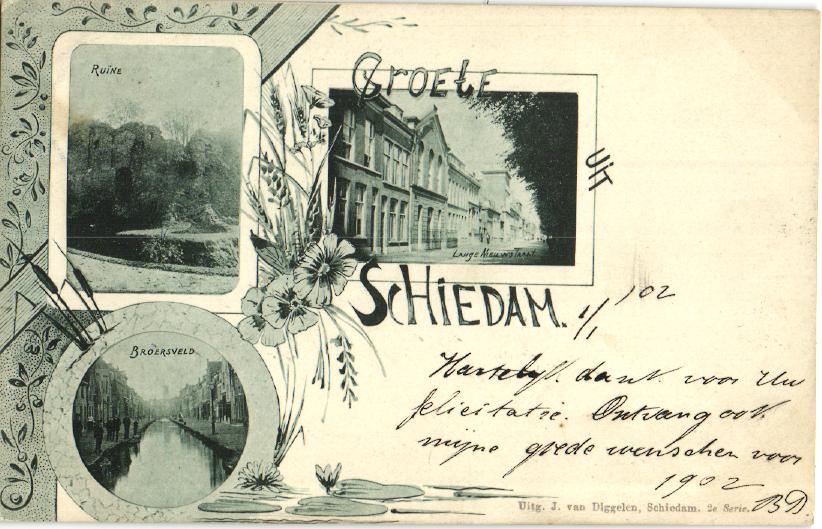 Ruïne
Groete
Uit
Lange Nieuwstraat
Schiedam.
1/1 '02
Broersveld
Hartelijk dank voor Uw
felicitatie. Ontvang ook
mijne goede wenschen voor
1902
BD.
Uitg. J. van Diggelen, Schiedam. 2e Serie.